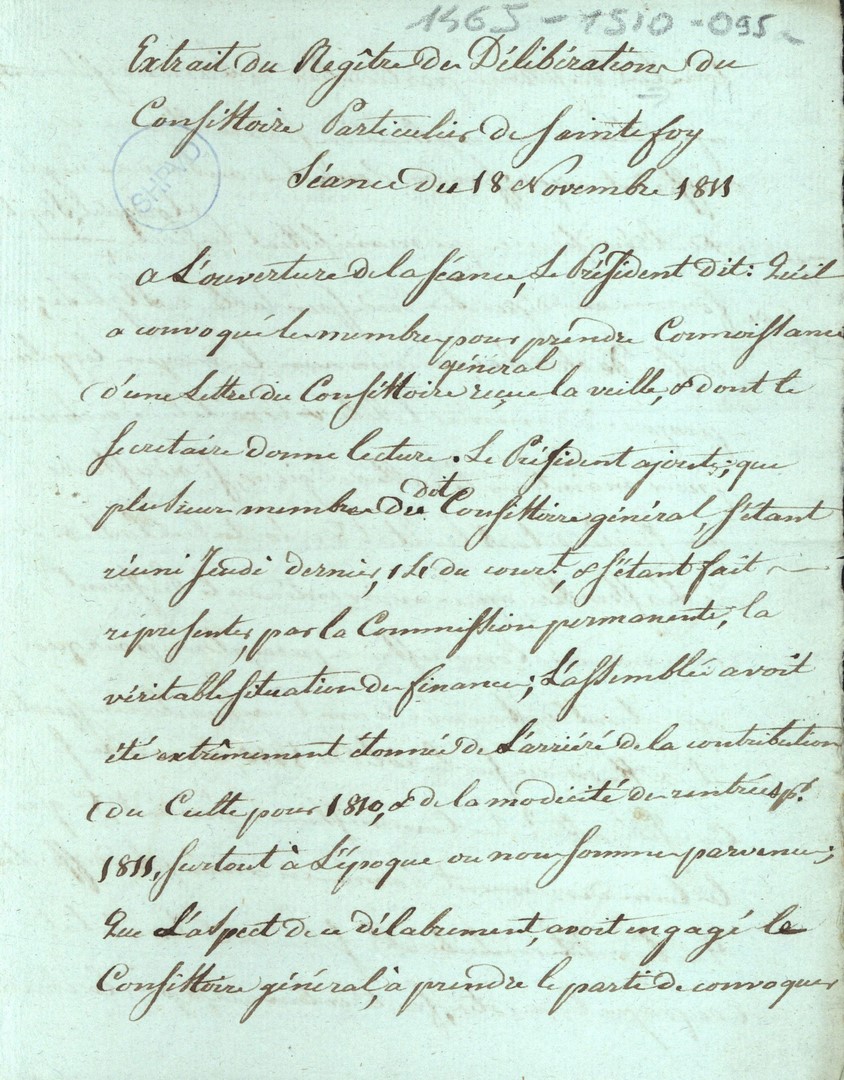 1465-1510-095
Extrait du Regître des Délibérations du
Consistoire Particulier de Sainte foy
SHPVD
Séance du 18 Novembre 1811
a L'ouverture de la séance, Le Président dit: Qu'il
a convoqué les membres pour prendre Connoissance
général
d'une Lettre du Consistoire reçue la veille, & dont le
Secretaire donne lecture. Le Président ajoute; que
dit
plusieurs membres du Consistoire général, s'étant
réuni Jeudi dernier, 14 du cour.t, & s'étant fait
représenter, par la Commission permanente, la
véritable situation des finances; L'assemblée avoit
été extrêmement étonnée de L'arriéré de la contribution
du Culte pour 1810, & de la modicité des rentrées p.r
1811, surtout à L'époque ou nous sommes parvenus;
Que L'aspect de ce délabrement, avoit engagé le
Consistoire général, à prendre le parti de convoquer